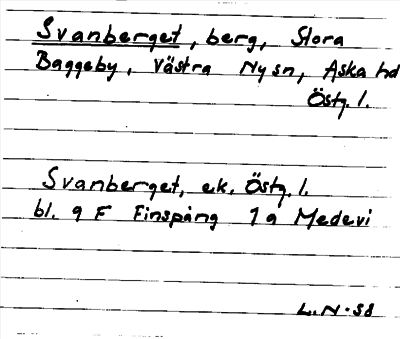 Svanberget, berg, Stora
Baggeby, Västra Nysn, Aska hd
Östg. l.
Svanberget, ek. Östg. l.
bl. 9 F Finspång 1 a Medevi
L.N. 58